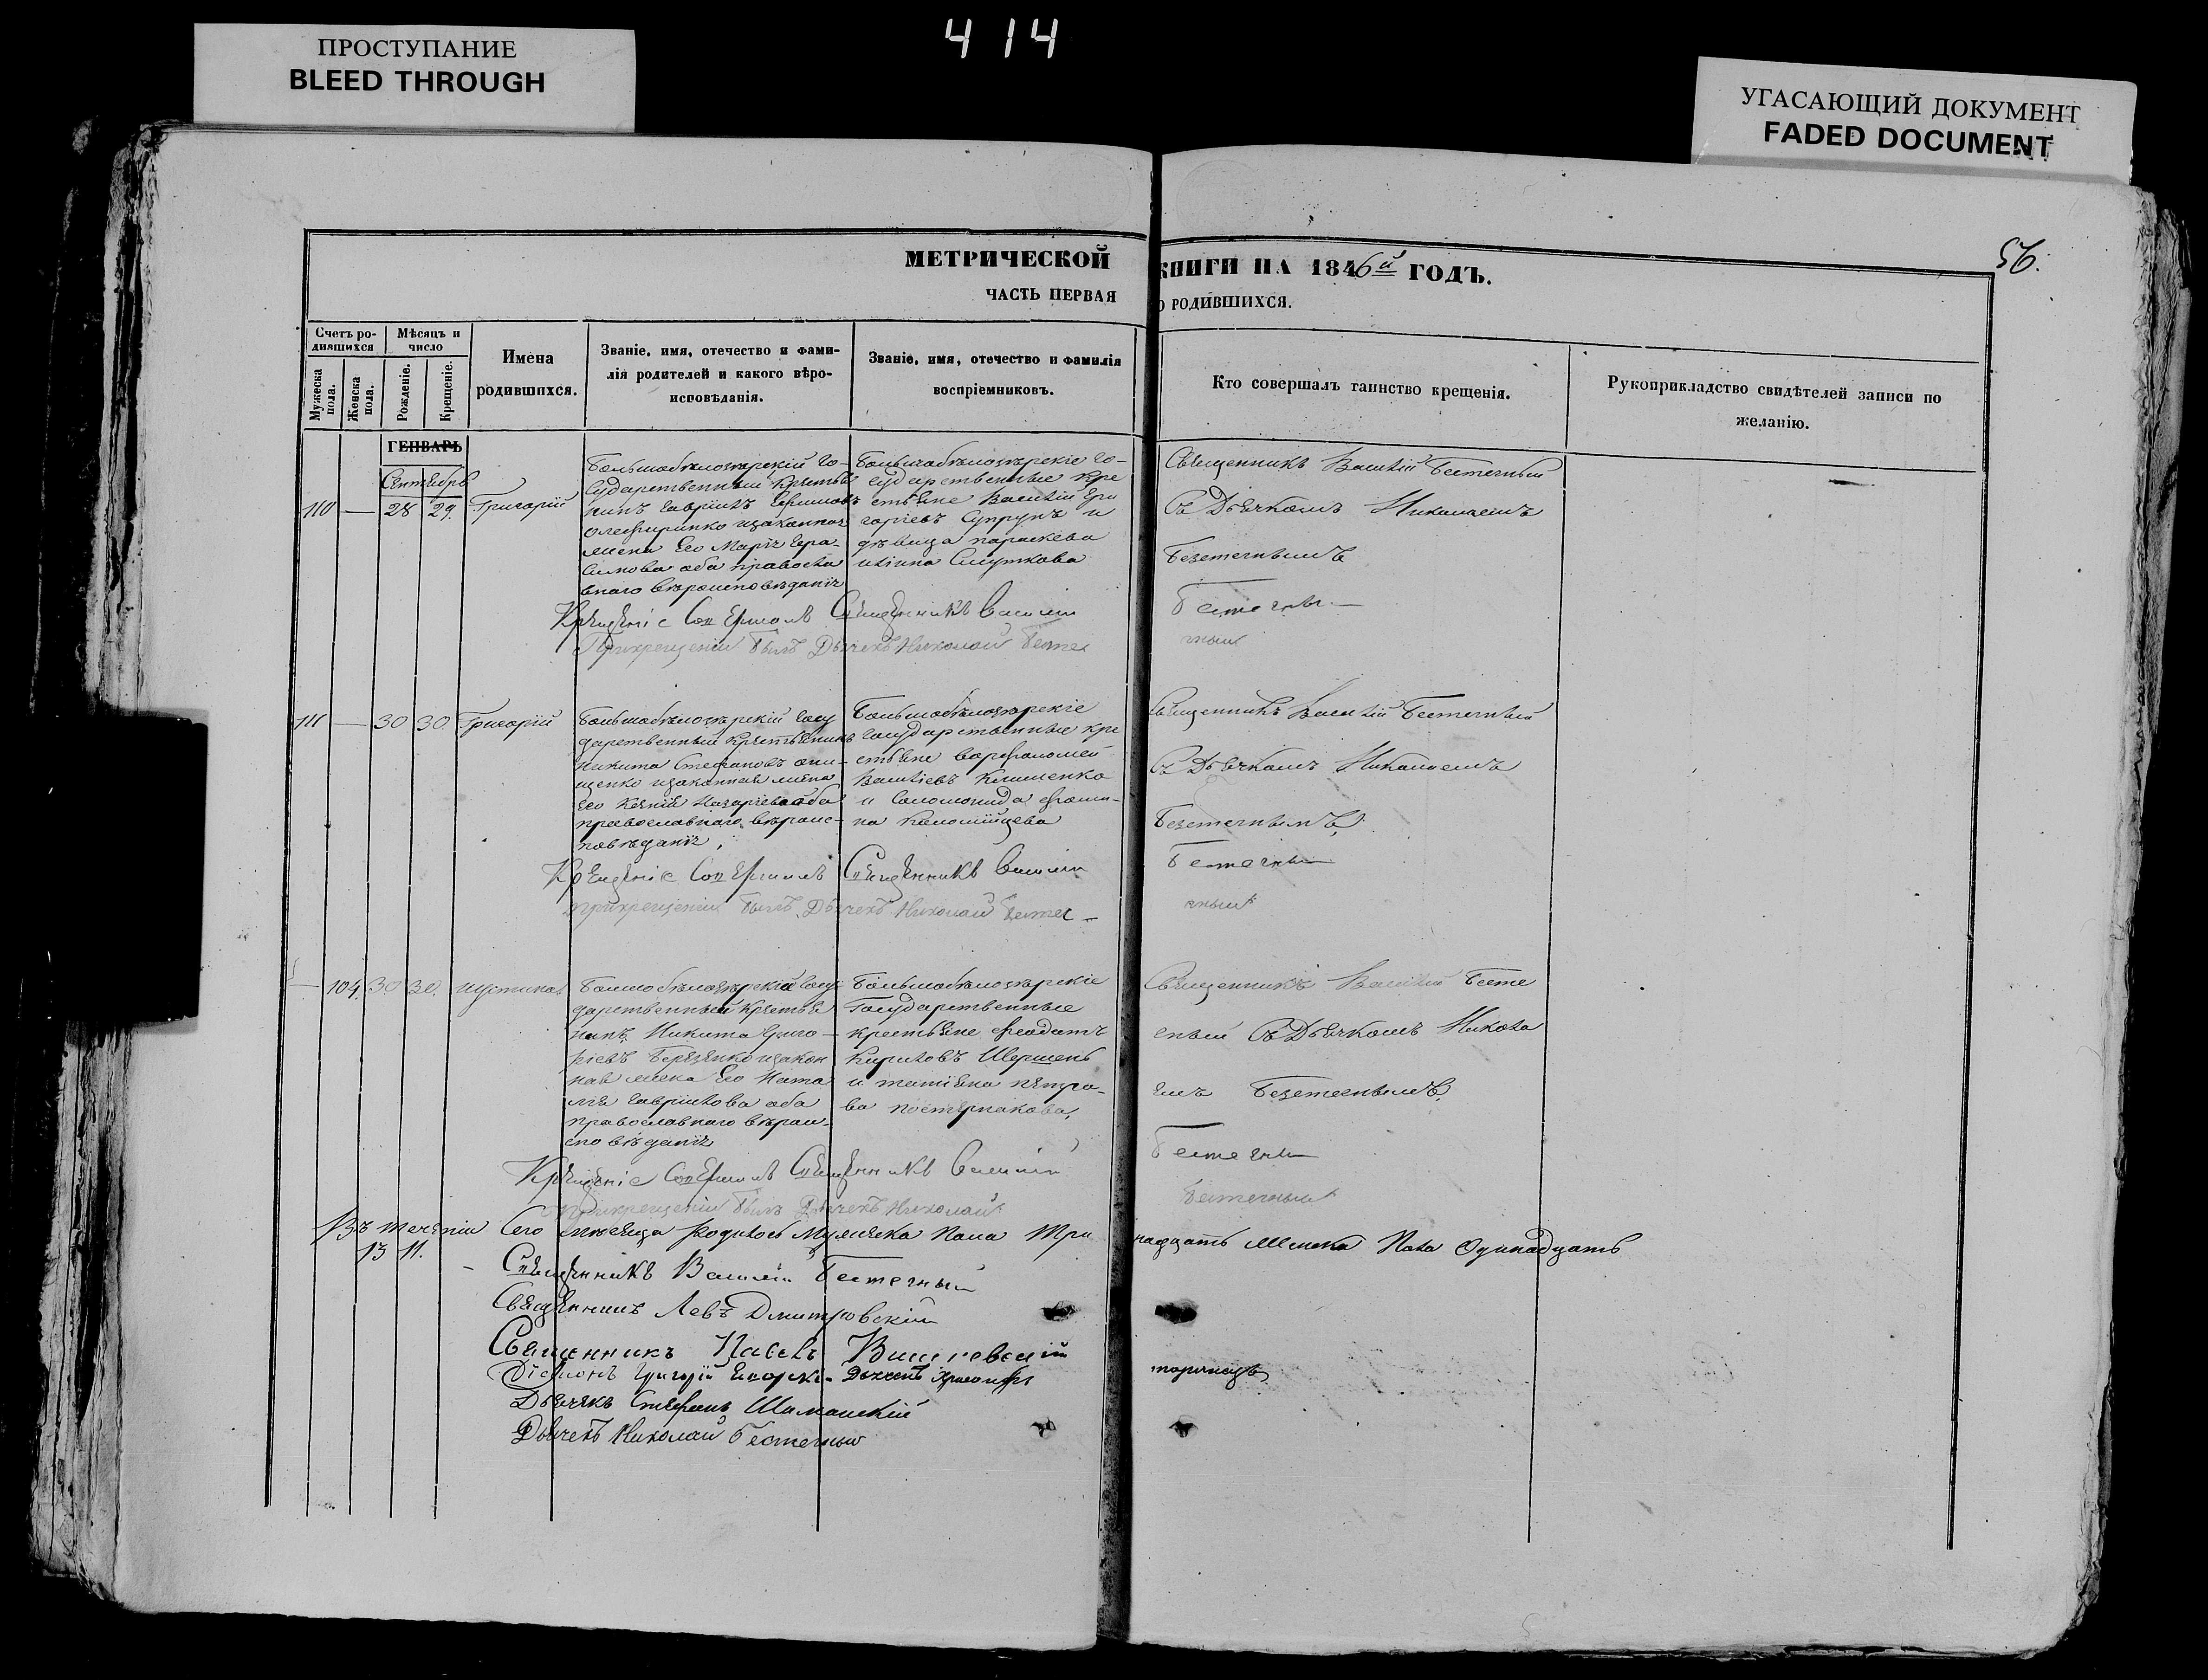 414
ПРОСТУПАНИЕ
BLEED THROUGH
УГАСАЮЩИЙ ДОКУМЕНТ
FADED DOCUMENT
56.
МЕТРИЧЕСКОЙ КНИГИ НА 1846й ГОДЪ.
ЧАСТЬ ПЕРВАЯ О РОДИВШИХСЯ.
Счетъ ро-
дившихся
Мужеска
пола.
Женска
пола.
Мѣсяцъ и
число
Рожденіе.
Крещеніе.
Имена
родившихся.
Званіе, имя, отечество и фами-
лія родителей и какого вѣро-
исповѣданія.
Званіе, имя, отечество и фамилія
воспріемниковъ.
Кто совершалъ таинство крещенія.
Рукоприкладство свидѣтелей записи по
желанію.
ГЕНВАРЬ
Сентябрь
110 — 28 29. Григорій
Большобѣлозѣрскій го-
сударственный крестья
нинъ Гавріилъ Ефимовъ
Олефиринко изаконная
жена Его Марія Гера-
симова оба правосла
внаго вѣроисповѣданія
Большобѣлозѣрскіе го-
сударственные кре
стьяне Василій Гри
горіевъ Супрунъ и
дѣвица параскева
Священникъ Василій Бестечный
Съ Дьячкомъ Николаемъ
Безтечнымъ
Крещеніе Совершалъ Священникъ Василій Бестечный
Прикрещеніи былъ Дьячекъ Николай Бестечный
111 — 30 30 Григорій
Большобѣлозѣрскій госу
дарственный крестьянинъ
Никита Стефановъ Они-
щенко изаконная жена
его Ксенія Назаріева оба
православнаго вѣроис-
повѣданія,
Большобѣлозѣрскіе
государственные кре
стьяне варфоломей
Василіевъ Клименко
и Соломонида фоми-
на Коломійцева
Священникъ Василій Бестечный
Съ Дьячкомъ Николаемъ
Безтечнымъ
Крещеніе Совершалъ Священникъ Василій Бестечный
прикрещеніи былъ Дьячекъ Николай Бестечный
— 104. 30 30. иустина
Большобѣлозѣрскій госу
дарственный крестья
нинъ Никита Григо-
ріевъ Березенко изакон
ная жена Его Ната
лія Гавріилова оба
православнаго вѣрои-
сповѣданія
Большобѣлозѣрскіе
Государственные
крестьяне феодотъ
Кириловъ Шершень
и татіана петро-
ва постернакова,
Священникъ Василій Бесте
чный Съ Дьячкомъ Никола
емъ Безтечнымъ
Крещеніе Совершалъ Священникъ Василій Бестечный
прикрещеніи былъ Дьячекъ Николай Бестечный
Въ теченіи Сего мѣсяца родилось Мужеска Пола Три надцать Женска Пола Одинадцать
13 11.
Священникъ Василій Бестечный
Священникъ Левъ Дмитровскій
Священникъ Павелъ
Діаконъ Григорій
Дьячекъ Стефанъ Шиманскій
Дьячекъ Николай Бестечный